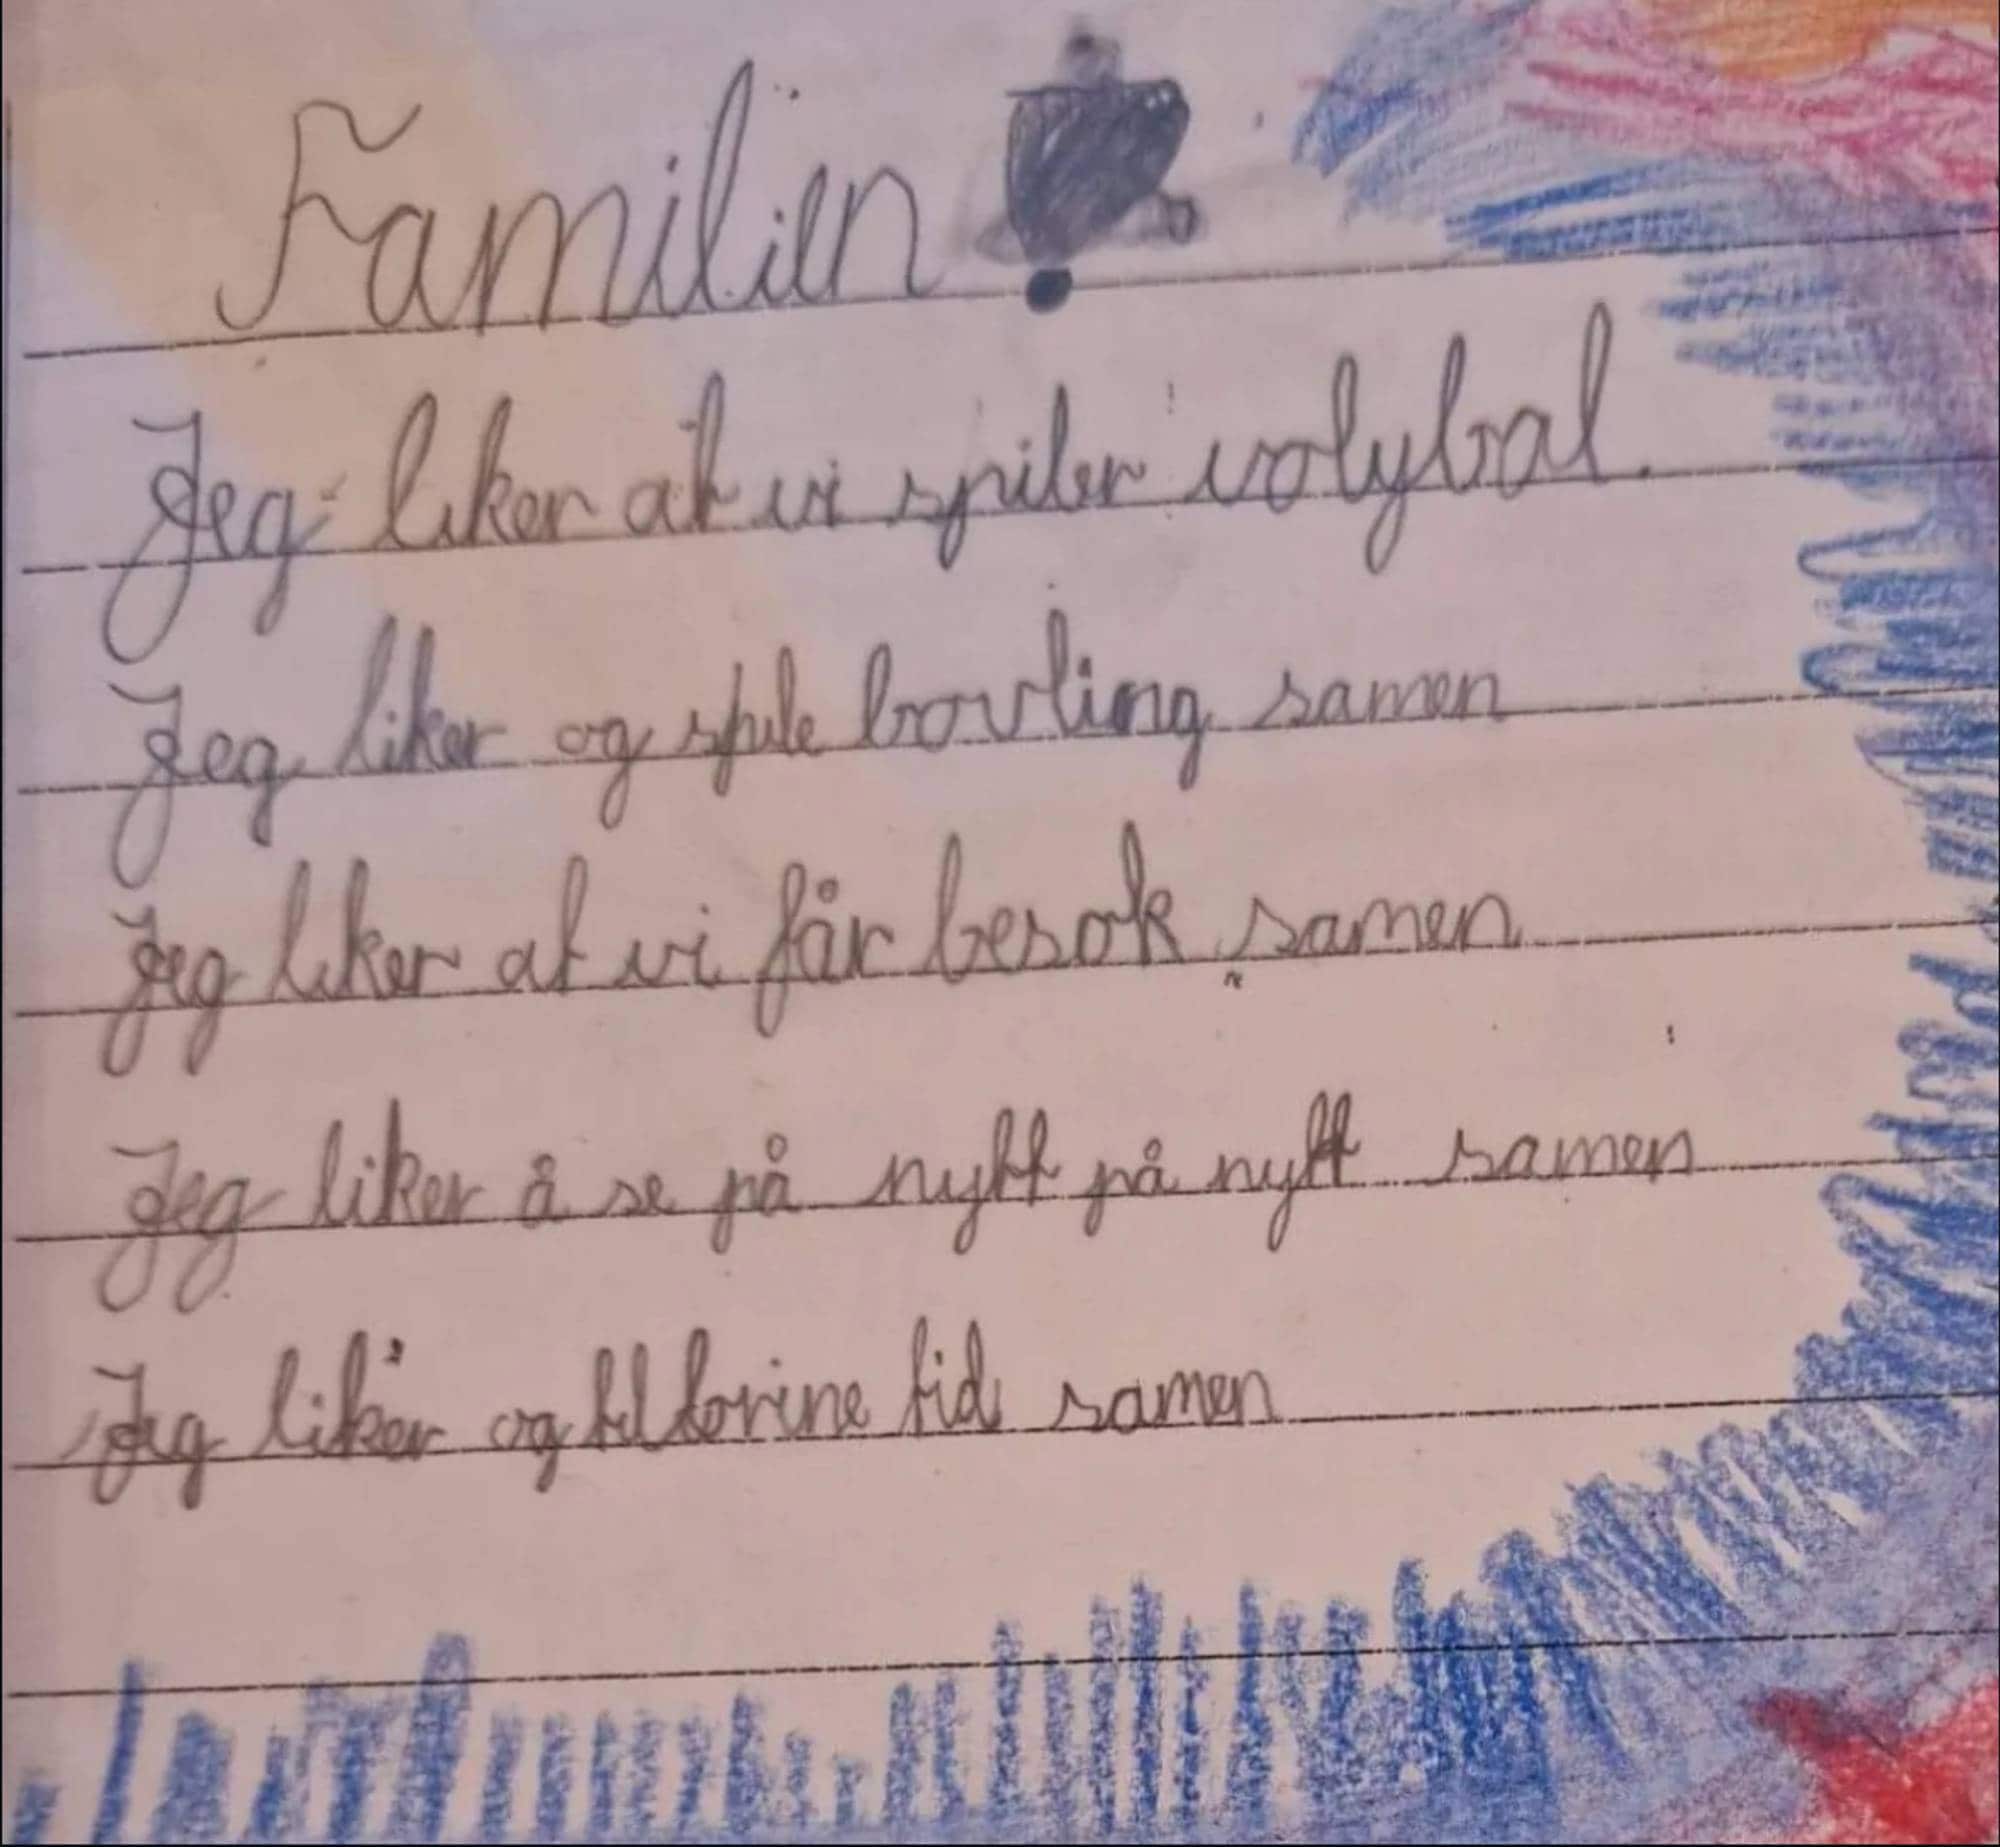 Familien
Jeg liker at vi spiler volybal.
Jeg liker og spile bovling samen
Jeg liker at vi får besøk samen
Jeg liker å se på nytt på nytt samen
Jeg liker og tid samen